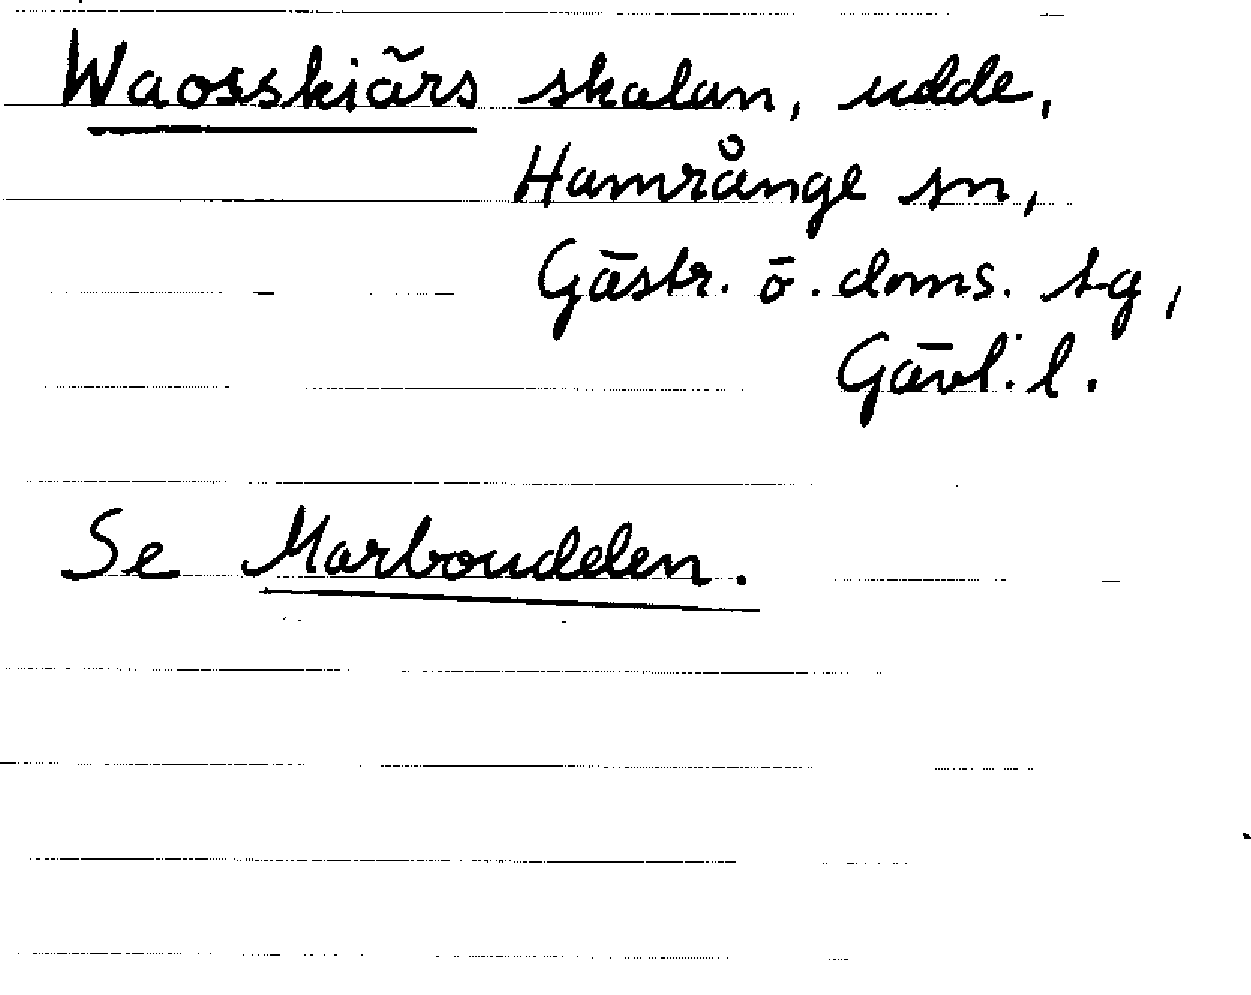 Waosskiärs skalan, udde,
Hamrånge sn,
Gästr. ö. doms. tg,
Gävl. l.
Se Marboudden.